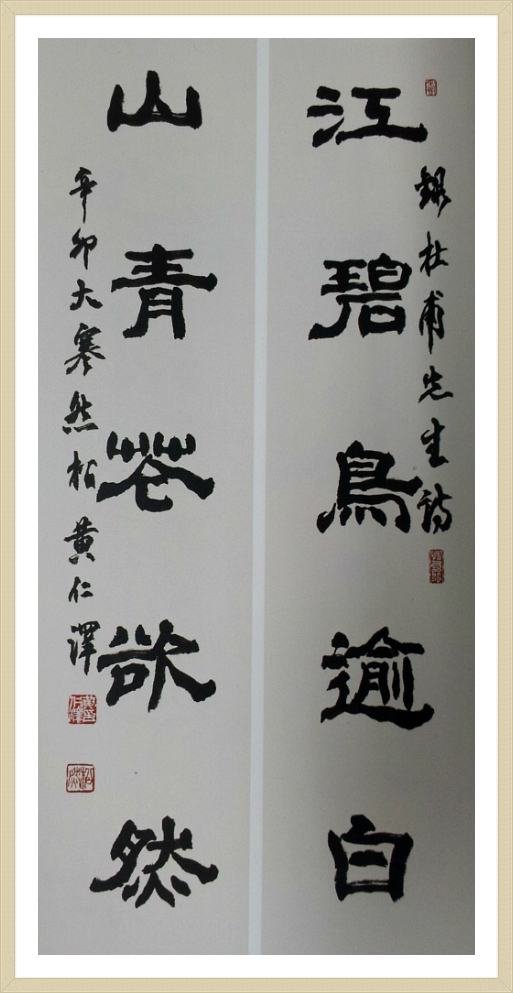 錄杜甫先生詩
江碧鳥逾白
山青花欲然
辛卯大寒然 黄仁澤